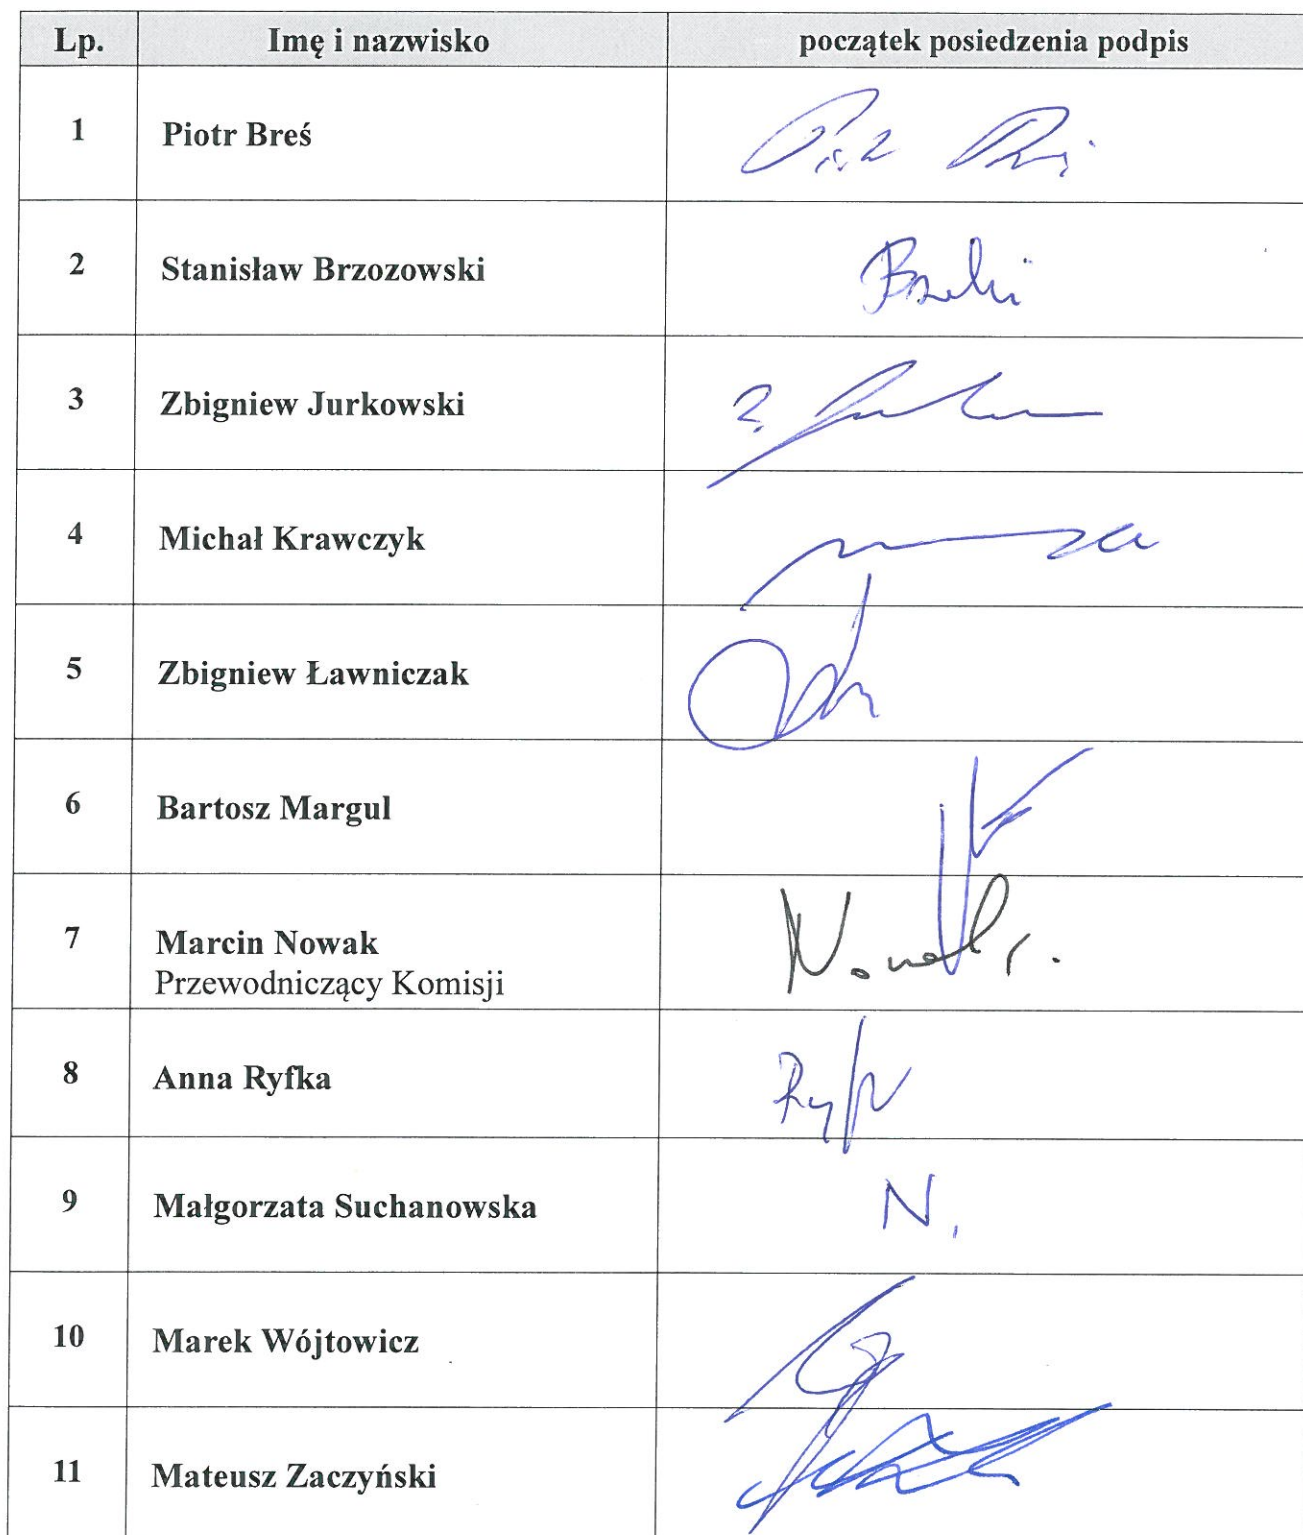 Lp. Imę i nazwisko początek posiedzenia podpis
1 Piotr Breś
2 Stanisław Brzozowski
3 Zbigniew Jurkowski
4 Michał Krawczyk
5 Zbigniew Ławniczak
6 Bartosz Margul
7 Marcin Nowak
Przewodniczący Komisji
8 Anna Ryfka
9 Małgorzata Suchanowska N.
10 Marek Wójtowicz
11 Mateusz Zaczyński